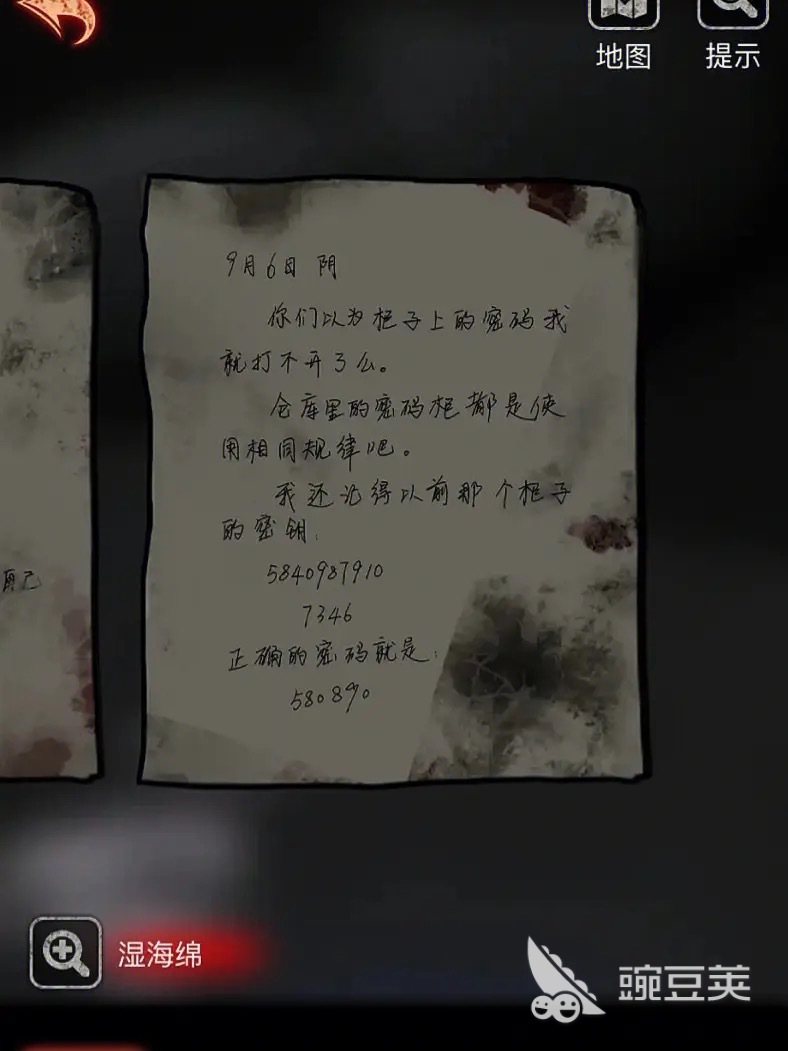 地图
提示
9月6日 阴
你们以为柜子上的密码我
就打不开了么。
仓库里的密码柜都是使
用相同规律吧。
我还记得以前那个柜子
的密钥:
5840987910
7346
正确的密码就是:
580890
自己
湿海绵
豌豆荚